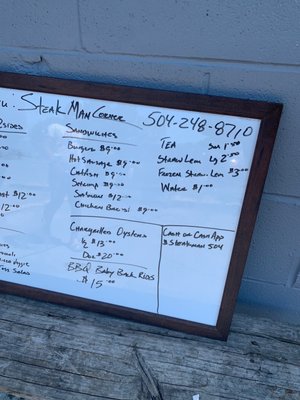 Steak Man Corner 504-248-8710
sides
Sandwiches
Burger $9.00
Hot Sausage $9.00
Catfish $9.00
Shrimp $9.00
Salmon $12.00
Chicken Breast $9.00
Chargrilled Oysters
1/2 $13.00
Doz $20.00
BBQ Baby Back Ribs
$15.00
TEA Sm 1.50
Lg 2.50
Frozen $3.00
Water $1.00
Cash or Cash App
$Steakman504
$12.00